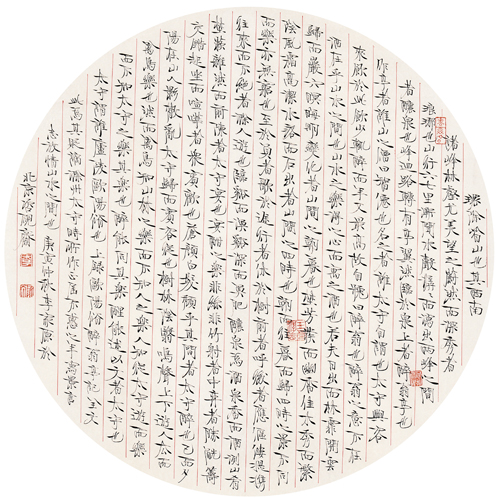 環滁皆山也其西南
諸峰林壑尤美望之蔚然而深秀者
瑯琊也山行六七里漸聞水聲潺潺而瀉出兩峰之間
者釀泉也峰回路轉有亭翼然臨於泉上者醉翁亭也
作亭者誰山之僧曰智僊也名之者誰太守自謂也太守與客
來飲於此飲少輒醉而年又最高故自號曰醉翁也醉翁之意不在
酒在乎山水之間也山水之樂得之心而寓之酒也若夫日出而林霏開雲
歸而巖穴暝晦明變化者山間之朝暮也野芳發而幽香佳木秀而繁
陰風霜高潔水落而石出者山間之四時也朝而往暮而歸四時之景不同
而樂亦無窮也至於負者歌於途行者休於樹前者呼後者應傴僂提攜
往來而不絕者滁人遊也臨谿而漁谿深而魚肥釀泉爲酒泉香而酒洌山肴
野蔌雜然而前陳者太守宴也宴酣之樂非絲非竹射者中弈者勝觥籌
交錯起坐而諠譁者衆賓懽也蒼顔白髮頹然乎其間者太守醉也已而夕
陽在山人影散亂太守歸而賓客從也樹林陰翳鳴聲上下遊人去而
禽鳥樂也然而禽鳥知山林之樂而不知人之樂人知從太守遊而樂
而不知太守之樂其樂也醉能同其樂醒能述以文者太守也
太守謂誰廬陵歐陽脩也 上録歐陽脩醉翁亭記全文
此爲其貶滁州太守時所作
放情山水之間也 庚寅仲秋
北京